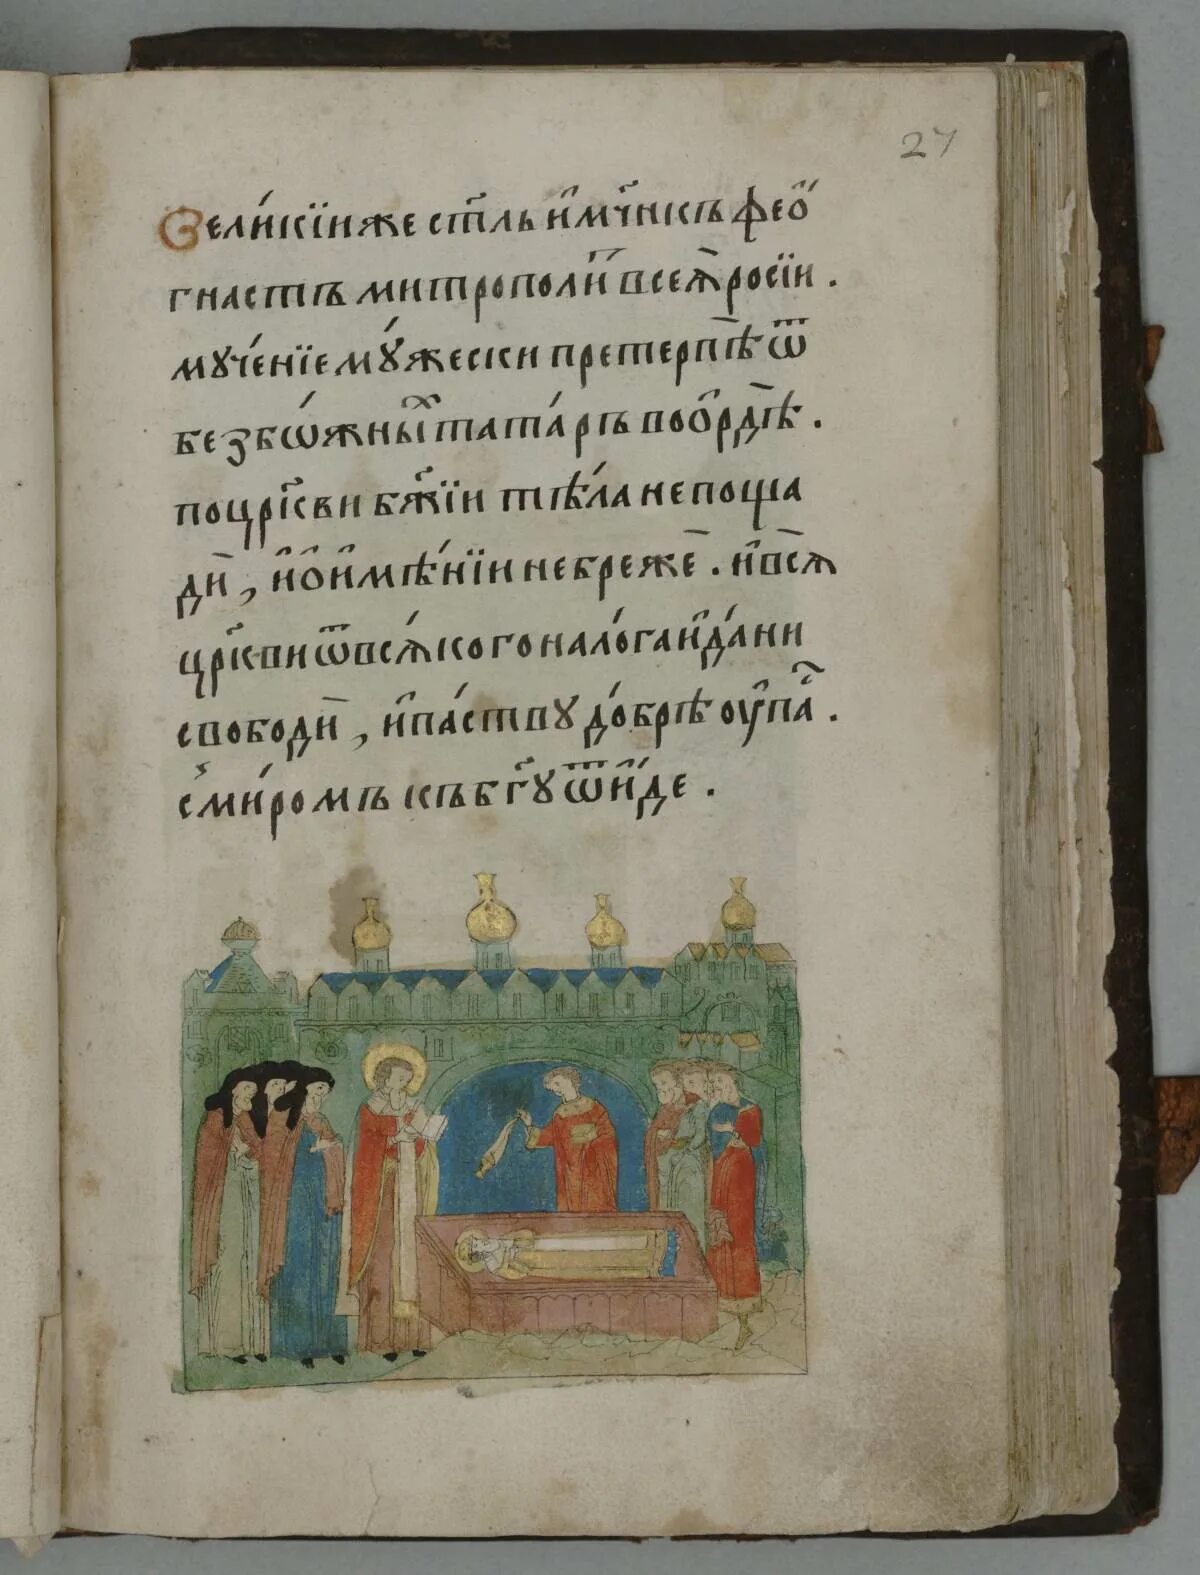 27
Вели́кїиже ст҃ль и҆ мч҃нкъ ѳео҆
гнастъ митрополи҆т всеѧ̀ росїи .
мꙋче́нїе мꙋ́жески претерпѣ̀ ѿ
безбѡ́жных татáръ во о҆рдѣ̀ .
по цр҃кви бж҃їи тѣ́ла не поща
дѝ , и҆ о҆ и҆мѣ́нїи не брежѐ . и҆ всѧ̀
цр҃кви ѿ всѧ́кого нало́га и҆ да́ни
свободѝ , и҆ па́ствꙋ до́брѣ оу҆па́с .
с̾ ми́ромъ къ бг҃ꙋ ѿи́де .